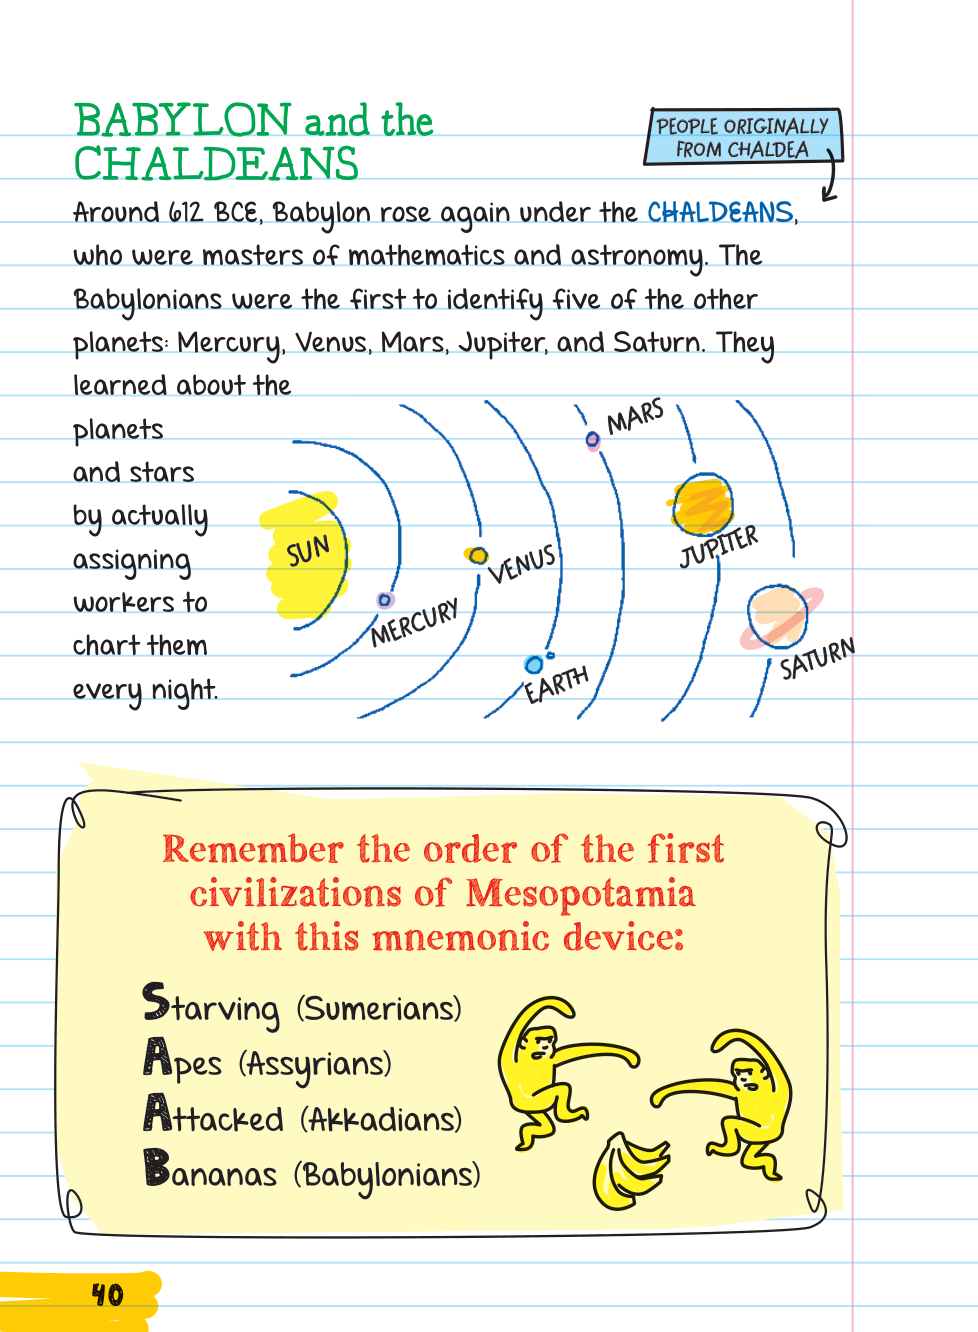 BABYLON and the
CHALDEANS
PEOPLE ORIGINALLY
FROM CHALDEA
Around 612 BCE, Babylon rose again under the CHALDEANS,
who were masters of mathematics and astronomy. The
Babylonians were the first to identify five of the other
planets: Mercury, Venus, Mars, Jupiter, and Saturn. They
learned about the
planets
and stars
by actually
assigning
workers to
chart them
every night.
SUN
MERCURY
VENUS
EARTH
MARS
JUPITER
SATURN
Remember the order of the first
civilizations of Mesopotamia
with this mnemonic device:
Starving (Sumerians)
Apes (Assyrians)
Attacked (Akkadians)
Bananas (Babylonians)
40